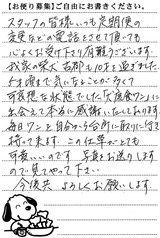 【お便り募集】ご自由にお書きください。
スタッフの皆様いつも定期便の
変更などの電話をさせて頂いても
心よくお受け下さり有難うございます。
我家の柴犬 も10才を過ぎました。
5才頃まで気になることが多くて
可哀想な状態でした「犬康食ワン」に
出会えて本当に感謝いたしております。
毎日ワンと自分から台所に取りに行き
持って来ます。この仕草がとても
可愛いいのです 写真をお送りします
ので見てやって下さい。
今後共 よろしくお願いします。